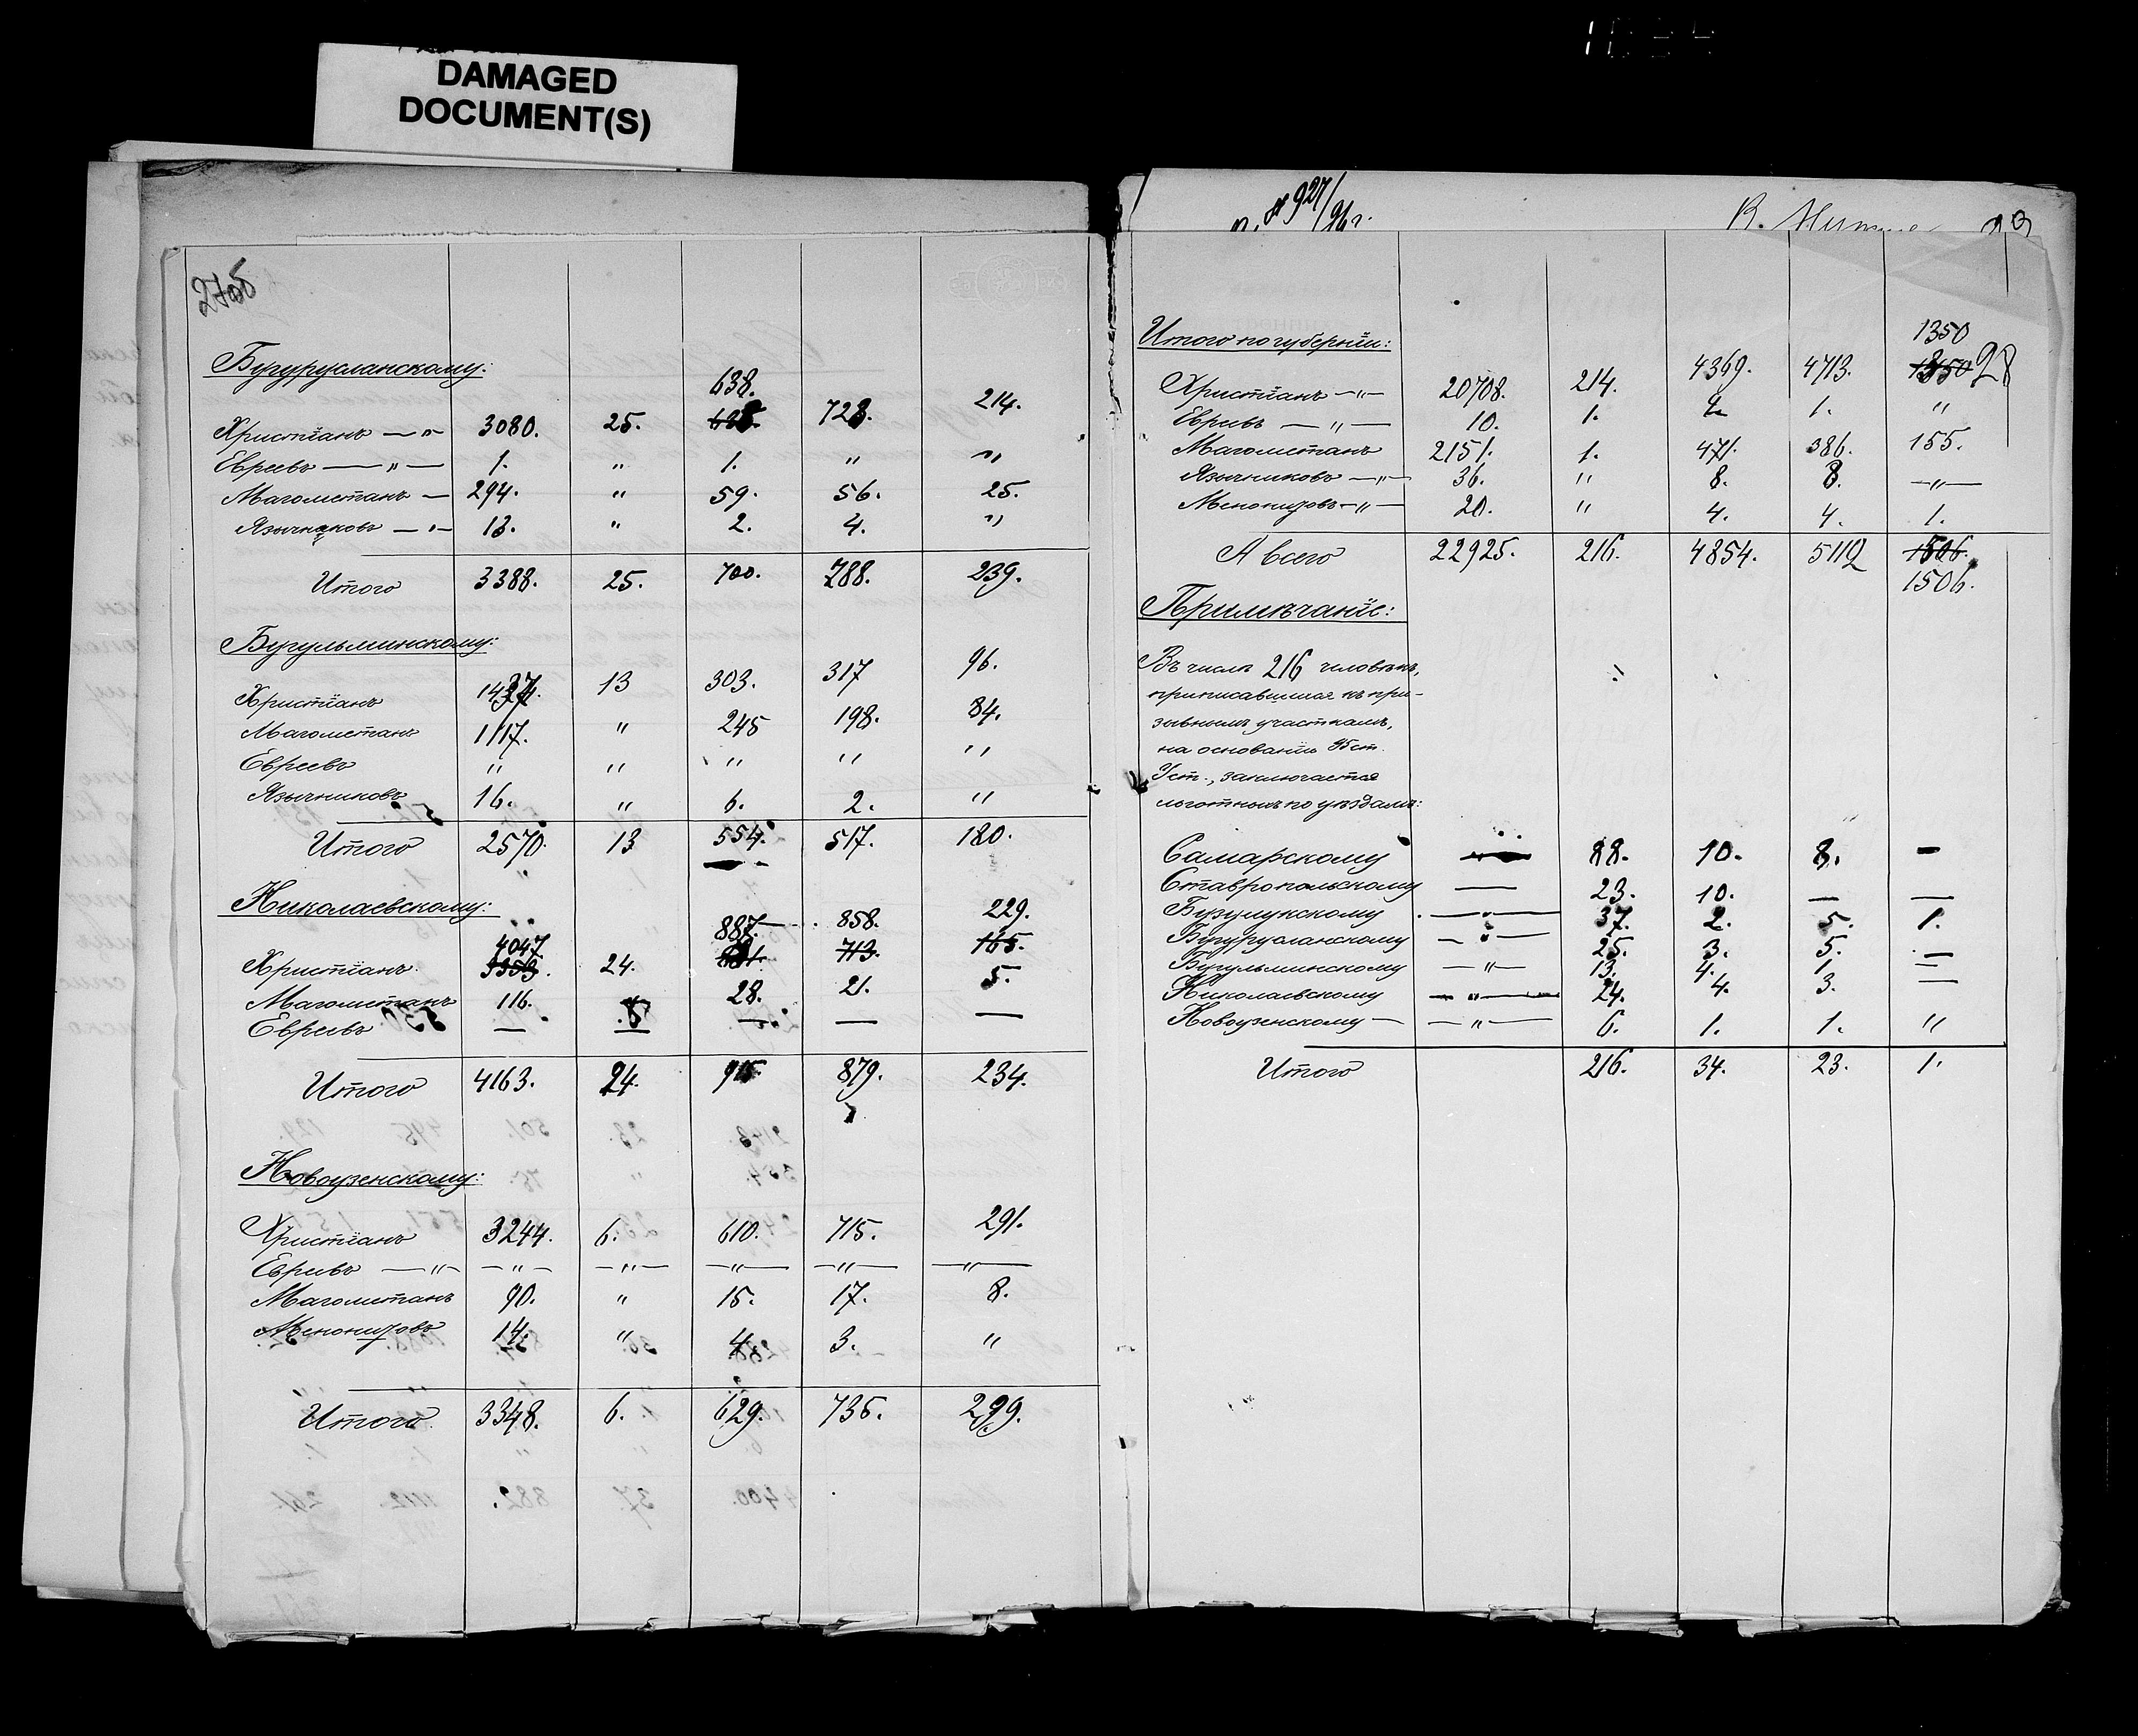 DAMAGED
DOCUMENT(S)
Бугурусланскому:
638.
Христіанъ — „ 3080. 25. 728. 214.
Евреевъ — „ — 1. „ 1. „ „
Магометанъ — 294. „ 59. 56. 25.
Язычниковъ — „ — 13. „ 2. 4. „
Итого 3388. 25. 700. 788. 239.
Бугульминскому:
Христіанъ 1437. 13 303. 317 96.
Магометанъ 1117. „ 245 198. 84.
Евреевъ „ „ „ „ „
Язычниковъ 16. „ 6. 2. „
Итого 2570. 13 554. 517. 180.
Николаевскому:
4047 887. 858. 229.
Христіанъ 24. 713. 165.
Магометанъ 116. 28. 21. 5.
Евреевъ — — — —
Итого 4163. 24. 915 879. 234.
Новоузенскому:
Христіанъ 3244. 6. 610. 715. 291.
Евреевъ — „ — — „ — — „ — — „ — — „ — — „ —
Магометанъ 90. „ 15. 17. 8.
Менонитовъ 14. „ 4. 3. „
Итого 3348. 6. 629. 735. 299.
№ 927/96 г.
Итого по губерніи:
1350
Христіанъ — „ — 20708. 214. 4369. 4713. 28
Евреевъ — „ — 10. 1. 2 1. „
Магометанъ 2151. 1. 471. 386. 155.
Язычниковъ — „ — 36. „ 8. 8. — „ —
Менонитовъ — „ — 20. „ 4. 4. 1.
А всего 22925. 216. 4854. 5112 1506.
1506.
Примѣчаніе:
Въ числѣ 216 человѣкъ,
приписавшихся къ при-
зывнымъ участкамъ,
на основаніи 95 ст.
Уст., заключается
льготныхъ по уѣздамъ:
Самарскому 88. 10. 8. —
Ставропольскому — 23. 10. — —
Бузулукскому — „ — 37. 2. 5. 1.
Бугурусланскому — „ — 25. 3. 5. —
Бугульминскому — „ — 13. 4. 1. —
Николаевскому — „ — 24. 4. 3. —
Новоузенскому — — „ — 6. 1. 1. „
Итого 216. 34. 23. 1.